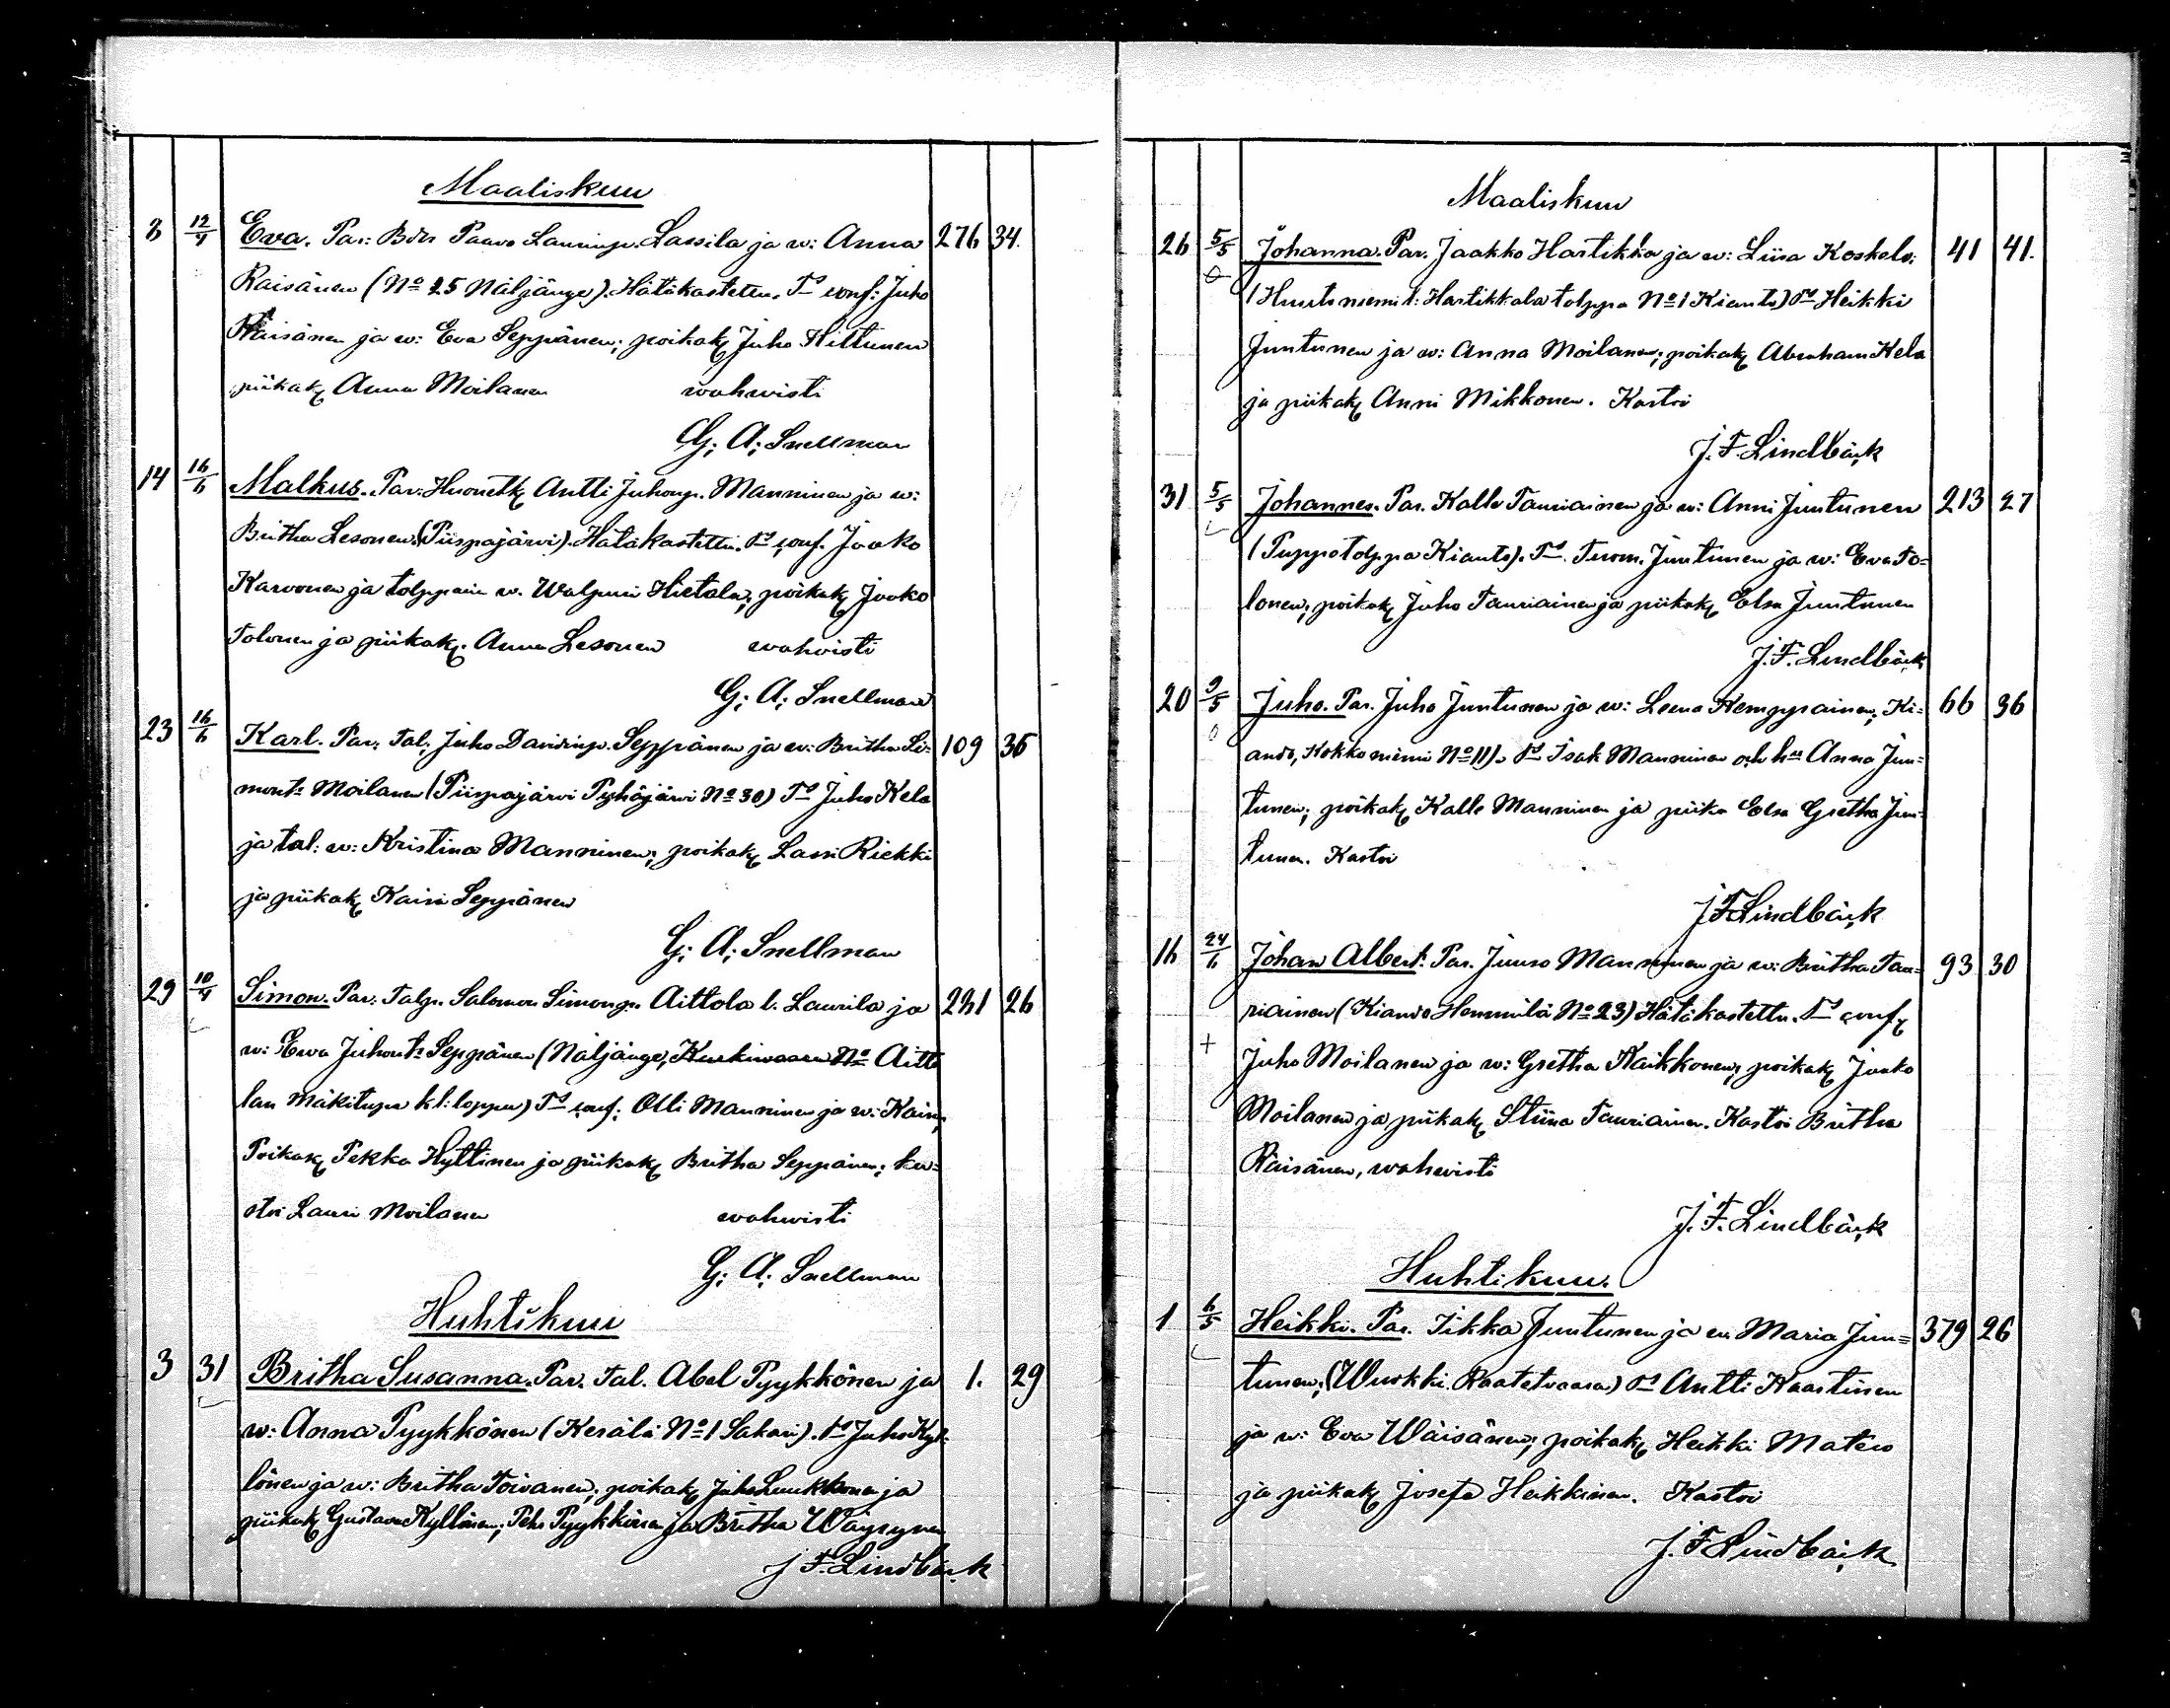 Maaliskuu
8 12/4 Eva. Par: Bdr Paavo Lauringp. Lassila ja w: Anna 276 34.
Raisänen (No 25 Näljänge). Hätäkastettu. Ts conf: Juho
Räisänen ja w: Eva Seppänen; poikak Juho Hiltunen
piikak Anna Moilanen wahwisti
G; A; Snellman
14 16/6 Malkus. Par: Huonetk Antti Juhonp. Manninen ja w:
Britha Lesonen. (Piispajärwi). Hätäkastettu. Ts conf. Jaako
Karvonen ja tolppain w. Walpuri Hietala; poikak Jaako
Tolonen ja piikak. Anna Lesonen wahvisti
G; A; Snellman
23 16/6 Karl. Par: Tal; Juho Davidinp. Seppänen ja w: Britha Si= 109 36
mont: Moilanen (Piispajärwi Pyhäjärwi No 30) Ts Juho Kela
ja tal: w: Kristina Manninen; poikak Lassi Riekki
ja piikak Kaisi Seppänen
G; A; Snellman
29 10/4 Simon. Par: Talp. Salomon Simonp. Aittola l. Laurila ja 231 26
w: Ewa Juhont: Seppänen (Näljänge, Kurkiwaara No Aitto
lan Mäkitupa kl: loppu) Ts conf: Olli Manninen ja w: Kaisa;
Poikak Pekka Hyttinen ja piikak Britha Seppänen; ka=
stoi Lauri Moilanen wahwisti
G; A; Snellman
Huhtikuu
3 31 Britha Susanna. Par. Tal. Abel Pyykkönen ja 1. 29
w: Anna Pyykkönen (Kerälä No 1 Sakari). Ts Juho Kyl=
lönen ja w: Britha Toivanen; poikak Juho Luukkonen ja
piikak Gustava Kyllönen; Pehr Pyykkönen ja Britha Wäyrynen
J F. Lindbäck
Maaliskuu
26 5/5 Johanna. Par. Jaakko Hartikka ja w: Liisa Koskelo; 41 41.
(Huutoniemi l: Hartikkala tolppa No 1 Kianto) Ts Heikki
Juntunen ja w: Anna Moilanen; poikak Abraham Kela
ja piikak Anni Mikkonen. Kastoi
J. F. Lindbäck
31 5/5 Johannes. Par. Kalle Tauriainen ja w: Anni Juntunen 213 27
(Puppo tolppa Kianto). Ts. Tuom. Juntunen ja w: Eva To=
lonen; poikak Juho Tauriainen ja piikak Elsa Juntunen
J. F. Lindbäck
20 9/5 Juho. Par. Juho Juntunen ja w: Leena Kemppainen; Ki= 66 36
ando, Kokkoniemi No 11). Ts Isak Manninen och hu Anna Jun=
tunen; poikak Kalle Manninen ja piika Elsa Gretha Jun=
tunen. Kastoi
J. F. Lindbäck
16 24/6 Johan Albert. Par. Juuso Manninen ja w: Britha Tau= 93 30
riainen (Kiando Hemmilä No 23) Hätäkastettu. Ts conf
Juho Moilanen ja w: Gretha Kaikkonen; poikak Jaako
Moilanen ja piikak Stiina Tauriainen. Kastoi Britha
Räisänen, wahwisti
J. F. Lindbäck
Huhtikuu.
1 6/5 Heikki. Par. Iikka Juntunen ja w. Maria Jun= 379 26
tunen; (Wuokki. Raatetvaara) Ts Antti Kaartinen
ja w: Eva Wäisänen; poikak Heikki Matero
ja piikak Josefa Heikkinen. Kastoi
J. F. Lindbäck